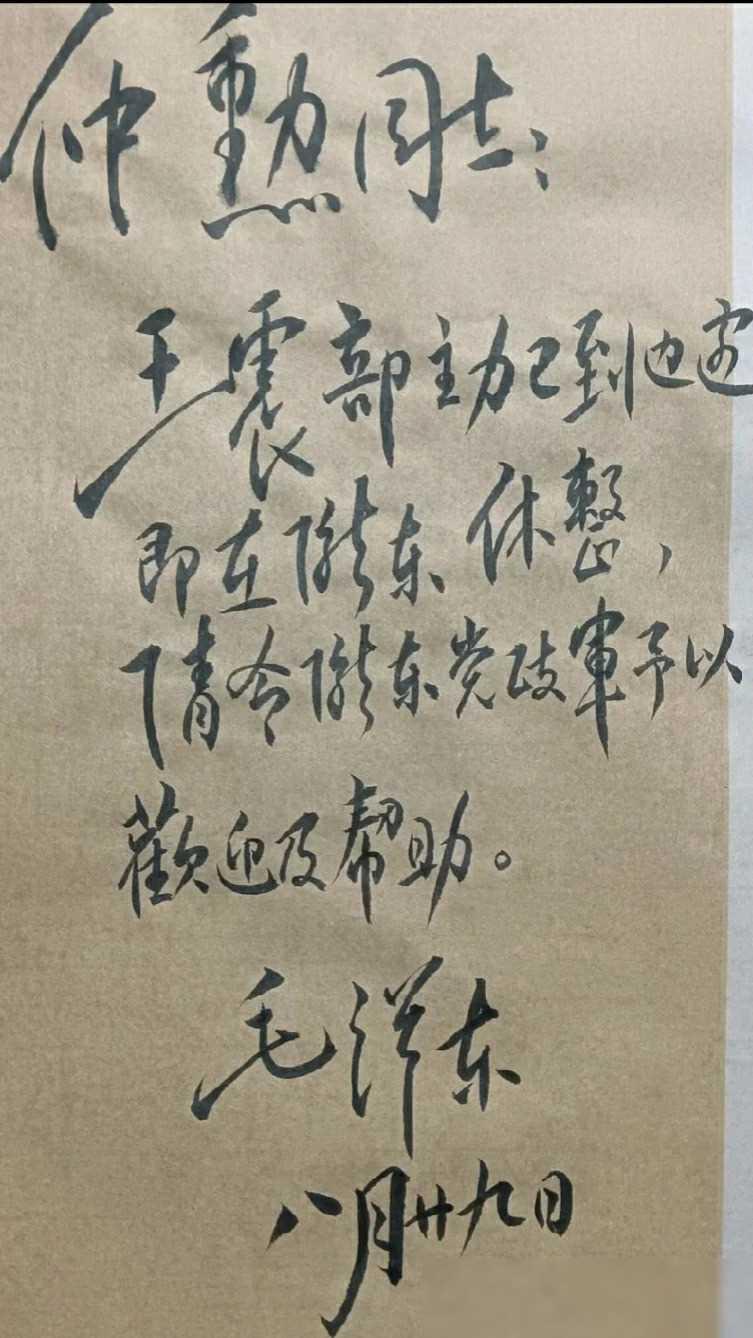 仲勳同志:
王震部主力已到边区
即在隴东休整,
请令隴东党政軍予以
歡迎及幫助。
毛泽东
八月廿九日